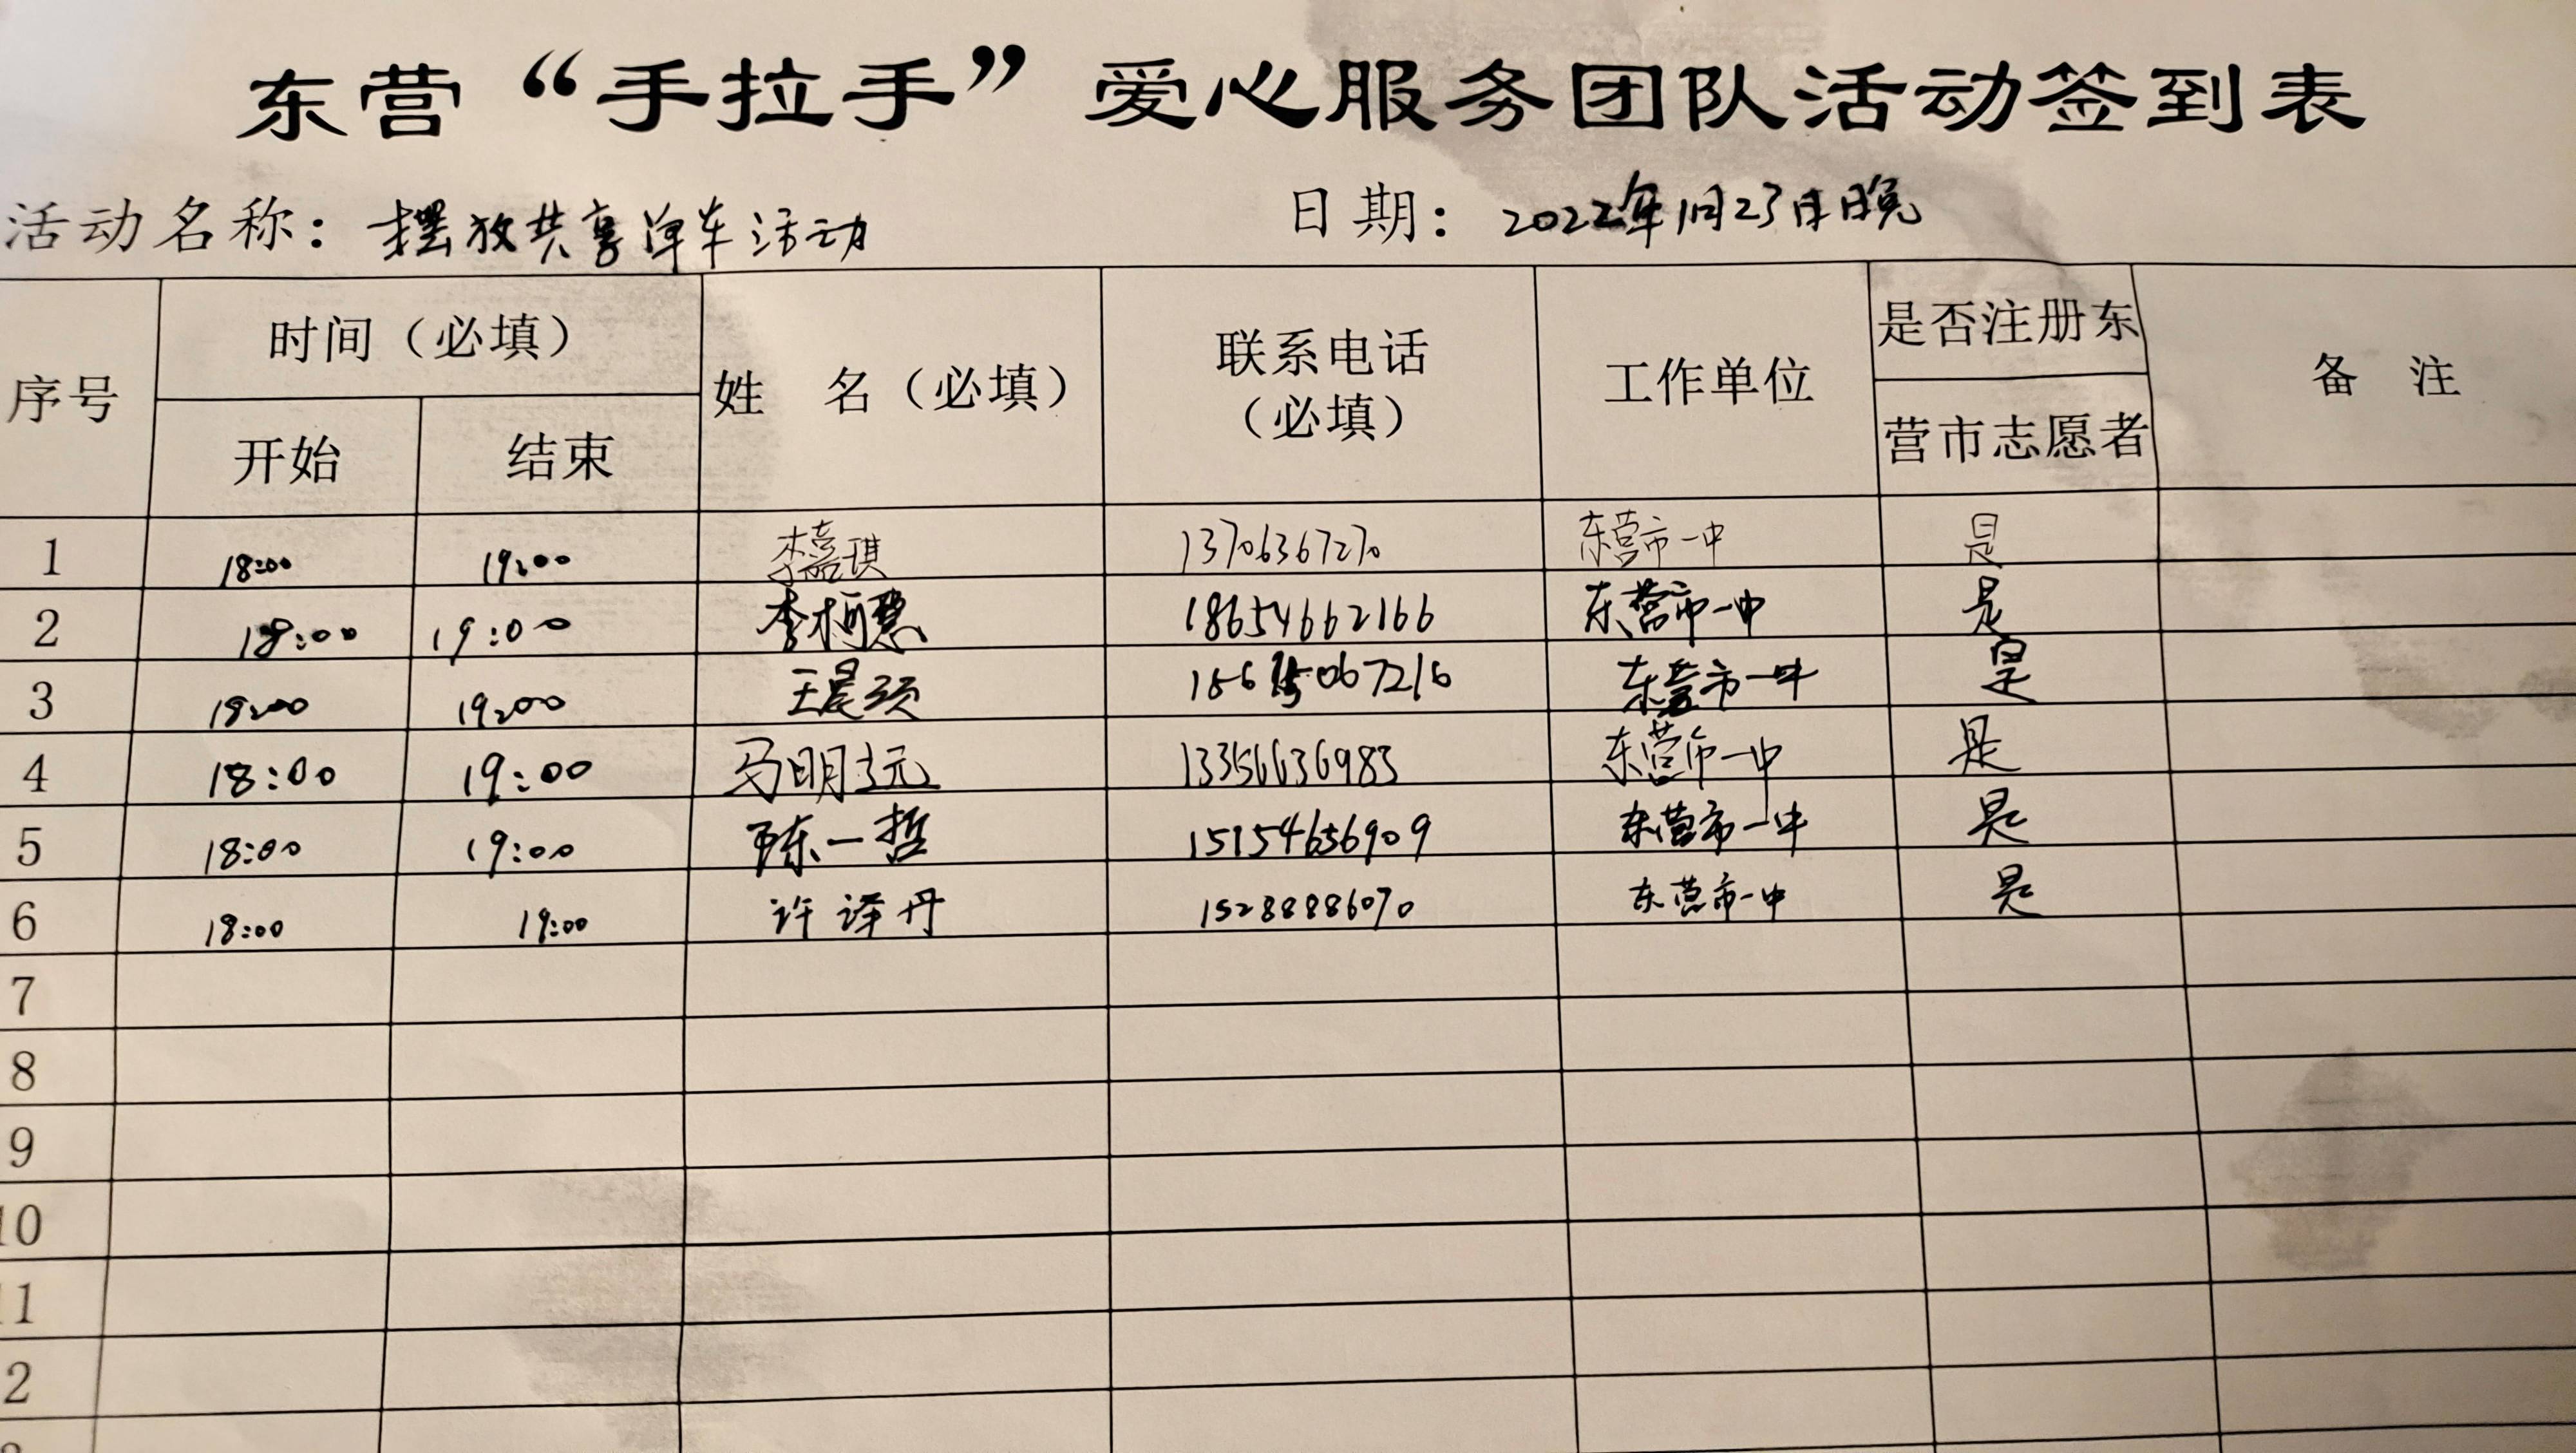 东营“手拉手”爱心服务团队活动签到表
活动名称：摆放共享单车活动 日期：2022年1月23日晚
序号 时间（必填） 姓 名（必填） 联系电话（必填） 工作单位 是否注册东营市志愿者 备 注
开始 结束
1 18:00 19:00 李嘉琪 13706367270 东营市一中 是
2 18:00 19:00 李柯慧 18654662166 东营市一中 是
3 18:00 19:00 王晨 东营市一中 是
4 18:00 19:00 马明 13356636983 东营市一中 是
5 18:00 19:00 陈一哲 15154656909 东营市一中 是
6 18:00 19:00 许译丹 15288886070 东营市一中 是
7
8
9
10
11
2